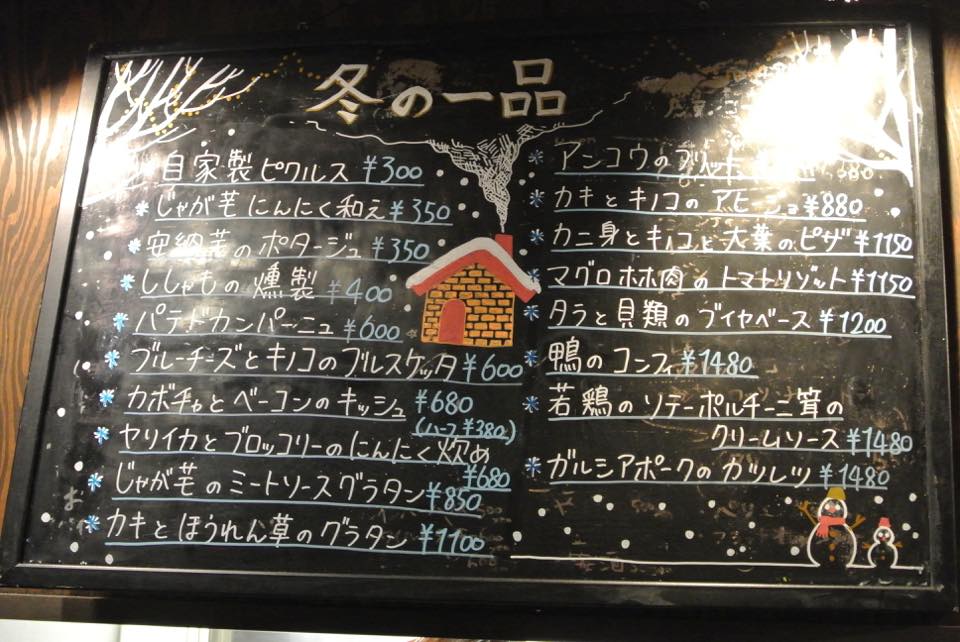 冬の一品
自家製ピクルス ¥300
じゃが芋にんにく和え ¥350
安納芋のポタージュ ¥350
ししゃもの燻製 ¥400
パテドカンパーニュ ¥600
ブルーチーズとキノコのブルスケッタ ¥600
カボチャとベーコンのキッシュ ¥680
(ハーフ ¥380)
ヤリイカとブロッコリーのにんにく炊め
¥680
じゃが芋のミートソースグラタン ¥850
カキとほうれん草のグラタン ¥1100
アンコウのフリット
カキとキノコのアヒージョ ¥880
カニ身とキノコと大葉のピザ ¥1150
マグロホホ肉のトマトリゾット ¥1150
タラと貝類のブイヤベース ¥1200
鴨のコンフィ ¥1480
若鶏のソテーポルチーニ茸の
クリームソース ¥1480
ガルシアポークのカツレツ ¥1480